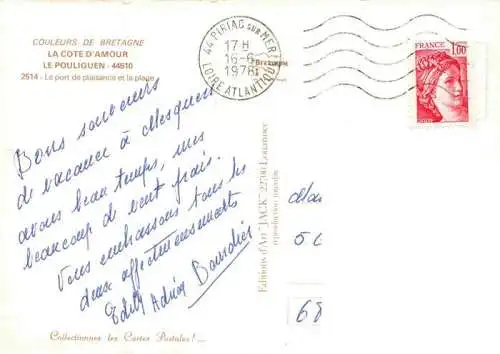 COULEURS DE BRETAGNE
LA COTE D'AMOUR
LE POULIGUEN - 44510
2514 - Le port de plaisance et la plage
44 PIRIAC SUR MER
17 H
16-6
1978
LOIRE ATLANTIQUE
FRANCE
1,00
Bons souvenirs
de vacance à Mesquer
avons beau temps, mais
beaucoup de vent frais.
Vous embrassons tous les
deux affectueusement
Edith Adrien Bourdier
Editions d'Art "JACK" 22730 Louannec
reproduction interdite
5
68
Collectionnez les Cartes Postales !...